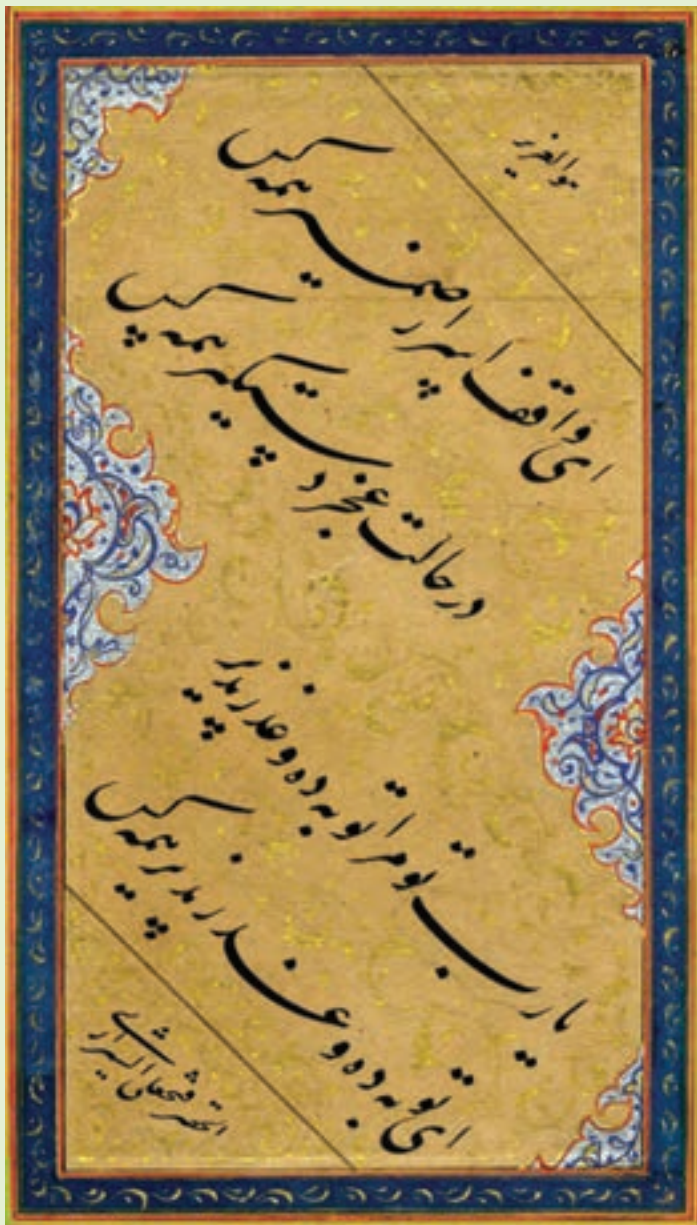 هو العزیز
ای واقف اسرار ضمیر همه کس
در حالت عجز دستگیر همه کس
یا رب تو مرا توبه ده و عذر پذیر
ای توبه ده و عذر پذیر همه کس
احقر فتحعلی الشیرازی